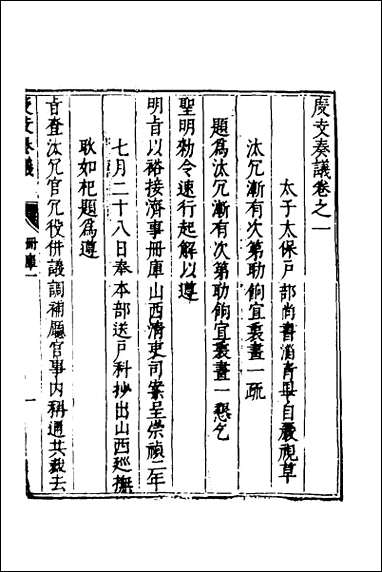 度支奏議卷之一
太子太保戶部尚書滔陽畢自嚴視草
汰冗漸有次第助餉宜裒畫一疏
題為汰冗漸有次第助餉宜裒畫一懇乞
聖明勑令速行起解以遵
明旨以裕接濟事冊庫山西清吏司案呈崇禎二年
七月二十八日奉本部送戶科抄出山西廵撫
耿如杞題為遵
旨查汰冗官冗役併議調補廳官事内稱通共裁去
度支奏議
冊庫一
一